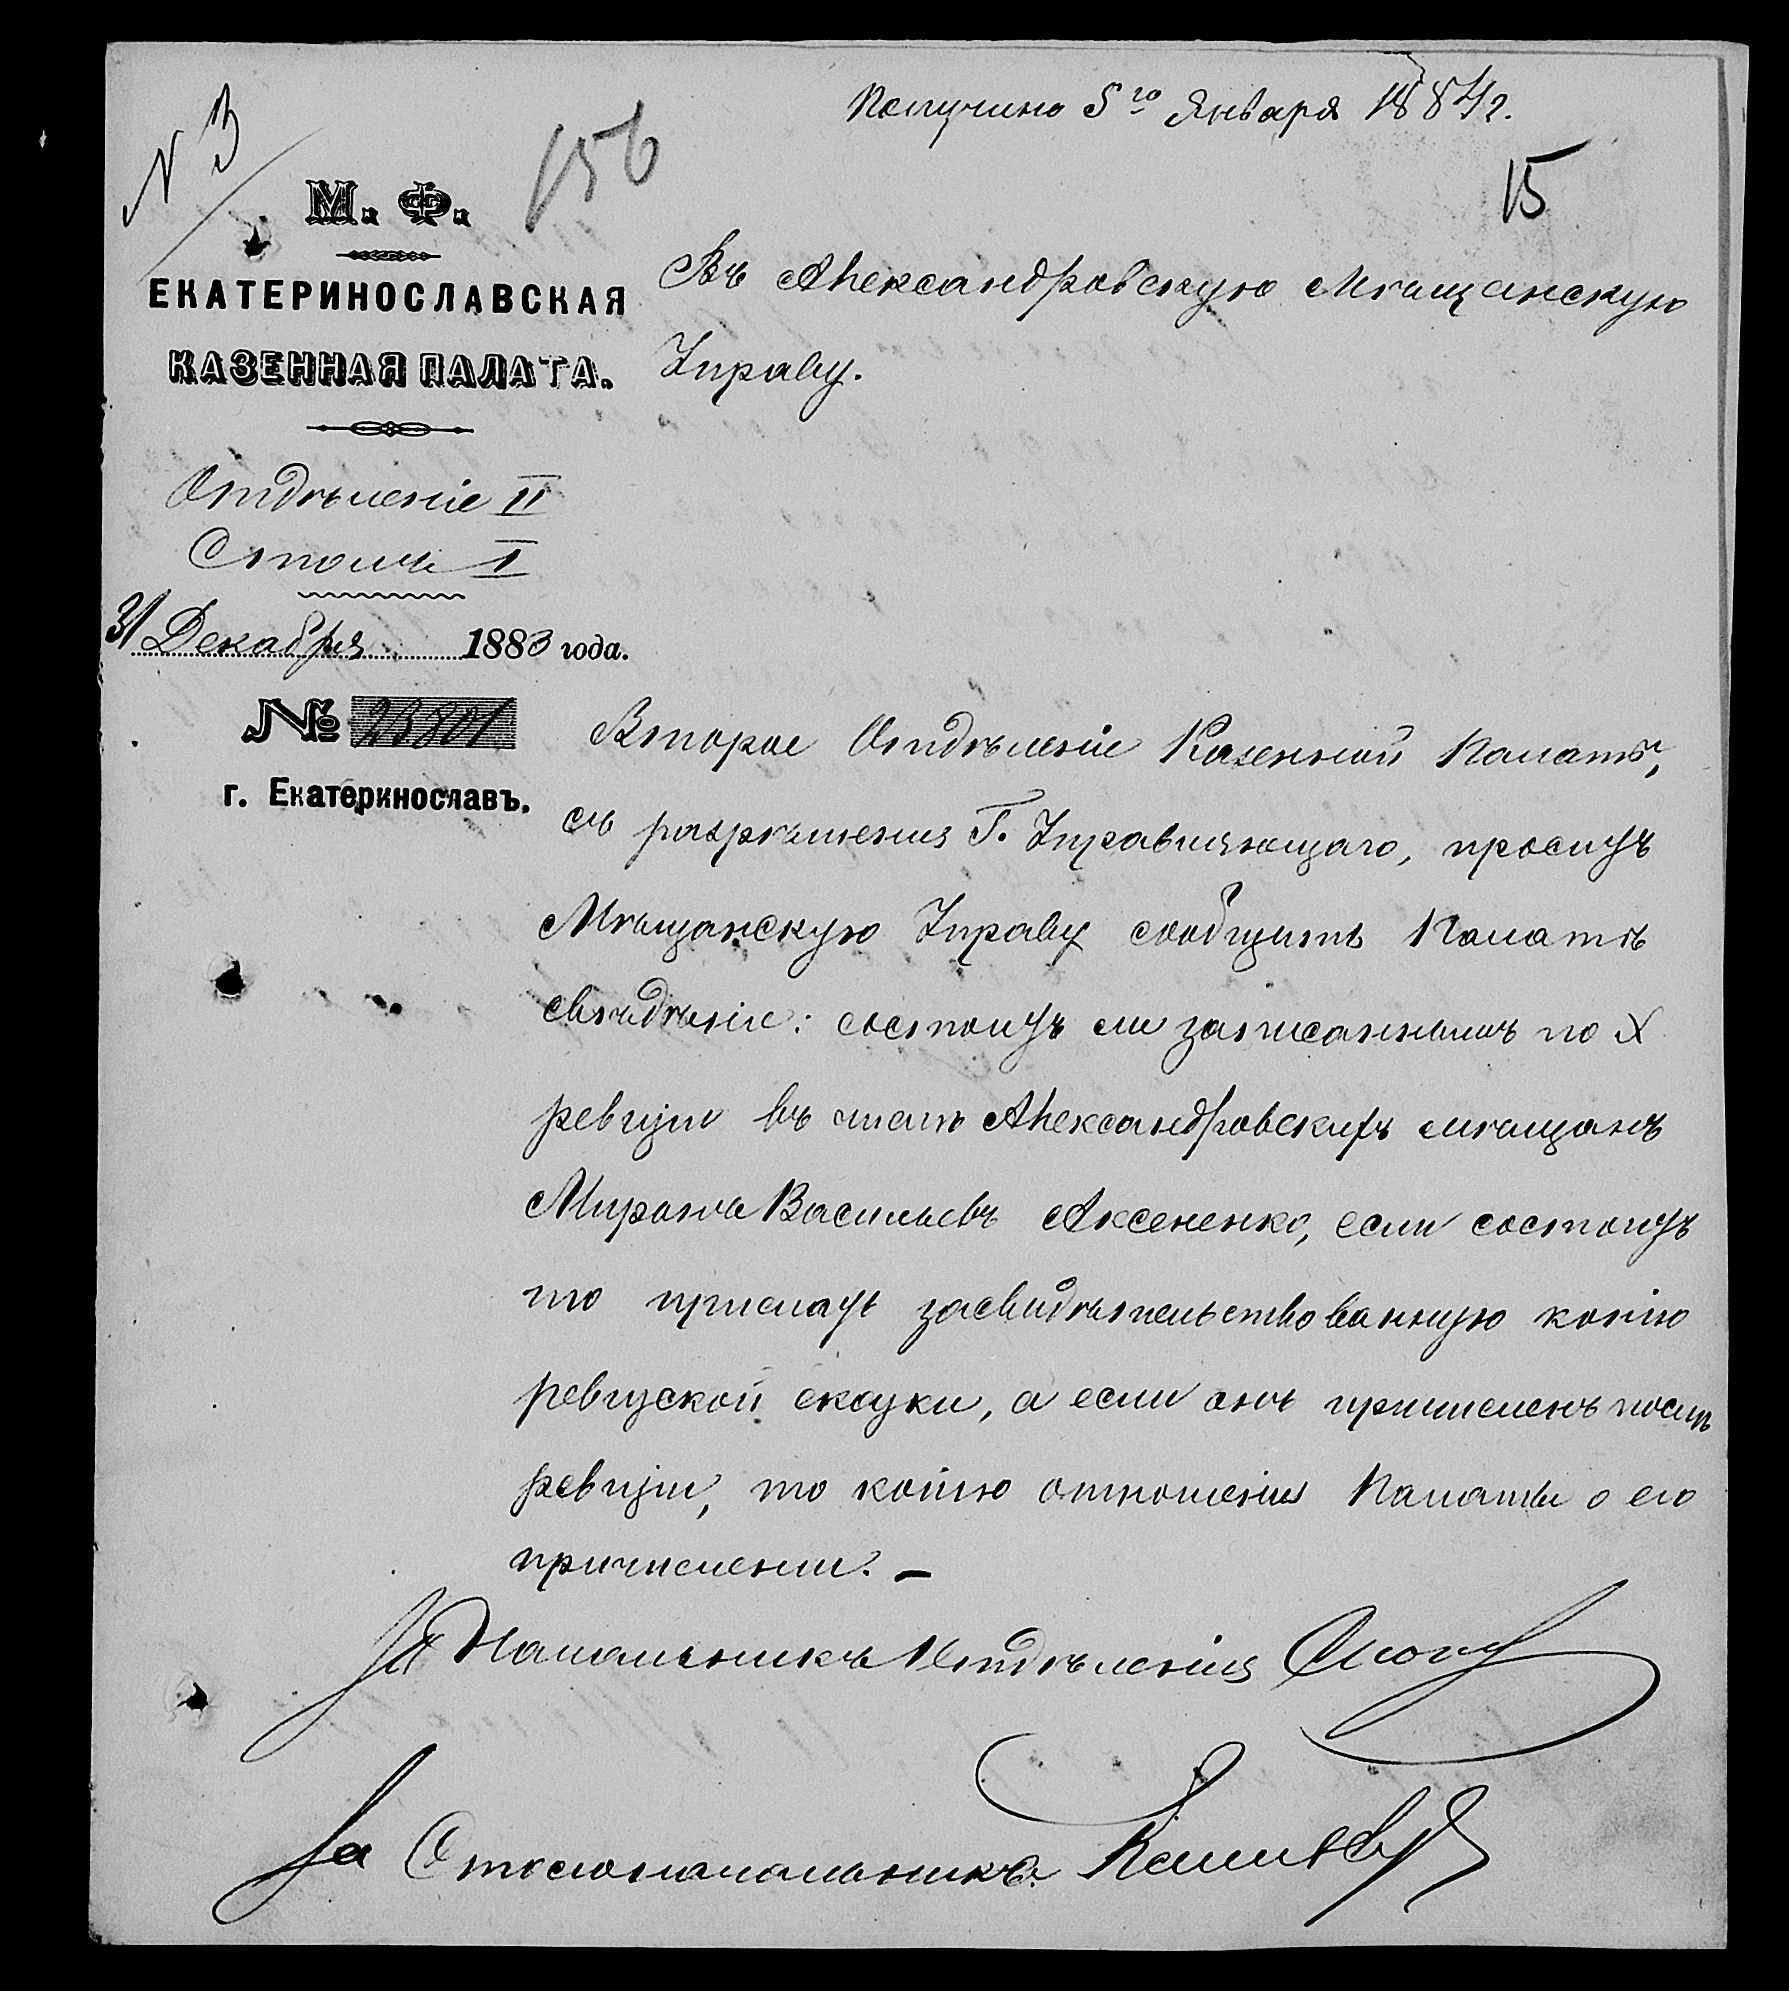 Получено 5го Января 1884 г.
N 3
156
15
М. Ф.
ЕКАТЕРИНОСЛАВСКАЯ
КАЗЕННАЯ ПАЛАТА.
Отдѣленіе II
Столъ I
31 Декабря 1883 года.
№ 23801
г. Екатеринославъ.
Въ Александровскую Мѣщанскую
Управу.
Второе Отдѣленіе Казенной Палаты,
съ разрѣшенія Г. Управляющаго, проситъ
Мѣщанскую Управу сообщить Палатѣ
свѣдѣніе: состоитъ ли записаннымъ по X
ревизіи въ числѣ Александровскихъ мѣщанъ
Миронъ Васильевъ Аксененко, если состоитъ
то прислать засвидѣтельствованную копію
ревизской сказки, а если онъ причисленъ послѣ
ревизіи, то копію отношенія Палаты о его
причисленіи. –
За Начальника Отдѣленія
За Столоначальника